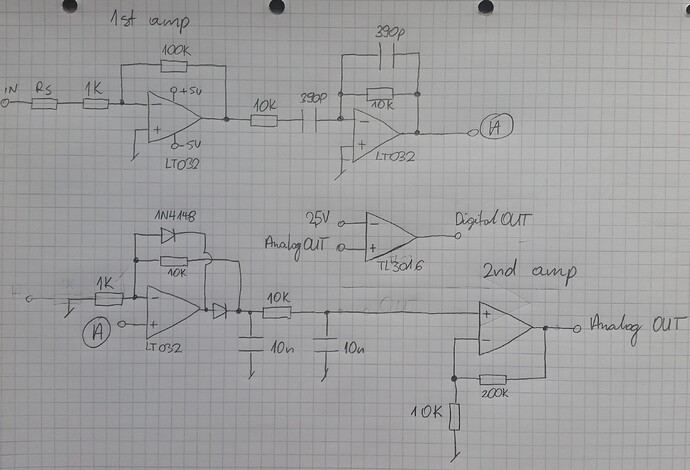 1st amp
100K
390p
IN
Rs
1K
+5V
10K
390p
10K
−
+
-5V
LT032
−
+
LT032
A
1N4148
25V
−
Digital OUT
Analog OUT
+
TL3016
10K
2nd amp
1K
−
10K
+
A
+
LT032
Analog OUT
10n
10n
−
200K
10K